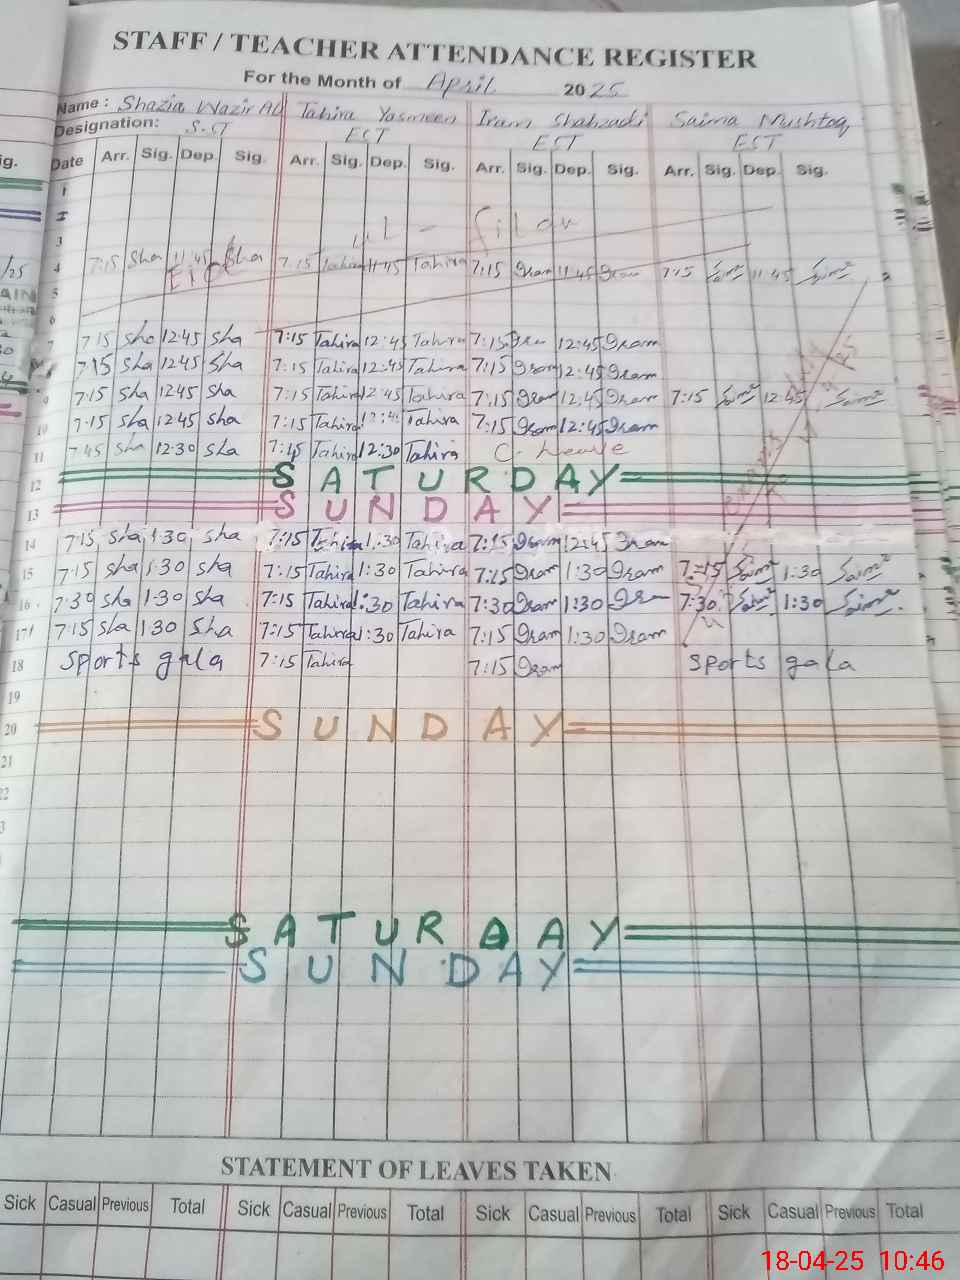 STAFF / TEACHER ATTENDANCE REGISTER
For the Month of April 2025
Name : Shazia Wazir Ali Tahira Yasmeen Iram Shahzadi Saima Mushtaq
Designation: S.ST EST EST EST
Date Arr. Sig. Dep. Sig. Arr. Sig. Dep. Sig. Arr. Sig. Dep. Sig. Arr. Sig. Dep. Sig.
1
2
3
4 7:15 Sha 11:45 Sha 7:15 Tahira 11:45 Tahira 7:15 Iram 11:45 Iram 7:15 11:45
5
6
7 7:15 Sha 12:45 Sha 7:15 Tahira 12:45 Tahira 7:15 Iram 12:45 Iram
8 7:15 Sha 12:45 Sha 7:15 Tahira 12:45 Tahira 7:15 Iram 12:45 Iram
9 7:15 Sha 12:45 Sha 7:15 Tahira 12:45 Tahira 7:15 Iram 12:45 Iram 7:15 12:45
10 7:15 Sha 12:45 Sha 7:15 Tahira Tahira 7:15 Iram 12:45 Iram
11 7:45 Sha 12:30 Sha 7:15 Tahira 12:30 Tahira C. Leave
12 SATURDAY
13 SUNDAY
14 7:15 Sha 1:30 Sha 7:15 Tahira 1:30 Tahira 7:15 Iram 12:45 Iram
15 7:15 Sha 1:30 Sha 7:15 Tahira 1:30 Tahira 7:15 Iram 1:30 Iram 7:15 1:30
16 7:30 Sha 1:30 Sha 7:15 Tahira 1:30 Tahira 7:30 Iram 1:30 Iram 7:30 1:30
17 7:15 Sha 1:30 Sha 7:15 Tahira 1:30 Tahira 7:15 Iram 1:30 Iram
18 Sports gala 7:15 Tahira 7:15 Iram Sports gala
19
20 SUNDAY
21
SATURDAY
SUNDAY
STATEMENT OF LEAVES TAKEN
Sick Casual Previous Total Sick Casual Previous Total Sick Casual Previous Total Sick Casual Previous Total
18-04-25 10:46